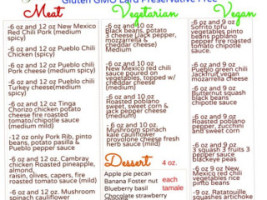 Gluten GMO Lard Preservative Free
Meat
-6 oz and 12 oz New Mexico
Red Chili Pork (medium
spicy)
-6 oz and 12 oz Pueblo Chili
Chicken (medium spicy)
-6 oz and 12 oz Pueblo Chili
Pork (medium spicy)
-6 oz and 12 oz Pueblo chili
Turkey cheese(medium
spicy)
-6 oz and 12 oz Tinga
Chorizo chicken potato
cheese fire roasted
tomato/chipotle sauce (mild)
-12 oz only Pork Rib, pinto
beans, potato pasilla &
Pueblo pepper sauce
-6 oz and 12 oz. Cambray
chicken Roasted pineapple,
almond,
raisin, olives, capers, fire
roasted tomato sauce (mild)
-6 oz and 12 oz. Mushroom
Vegetarian
-6 oz and 10 oz
Black beans, potato
3 cheese (Jack pepper,
mozzarella &
cheddar cheese)
Medium)
-6 oz and 10 oz. New
Mexico red chili sauce
poured on
vegetables, topped w/
cheddar cheese (
medium)
-6 oz and 10 oz
Roasted poblano
sweet corn &
jack cheese pepper
(medium)
-6 oz and 10 oz.
Mushroom spinach
kale cauliflower
provolone cheese fresh
herb sauce (mild)
Dessert
4 oz.
Apple pie pecan
Banana Foster nut
Blueberry basil
each
tamale
Vegan
-6 oz and 9 oz
vegetables pinto beans
poblano pepper fire
roasted tomato
chipotle sauce.
-6 oz and 9 oz
Pueblo green chili
Jackfruit vegan
mozzarella cheese
-6 oz and 9 oz
Butternut squash
black beans
chipotle sauce
-6 oz and 9 oz
Roasted poblano
pepper, zucchini
and sweet corn
-6 oz and 9 oz
Spinach mushrooms
3 fruits 3 pepper sauce
blackeye peas
-6 oz and 9 oz New
Mexico red chili
vegetables rice
pinto beans
-9 oz. Ratatouille
squashes artichoke